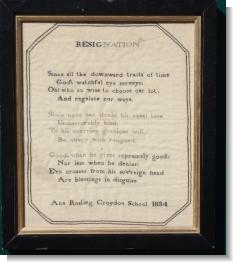 RESIGNATION
Since all the downward tracts of time
God's watchful eye surveys.
Oh! who so wise to choose our lot.
And regulate our ways.
Since none can doubt his equal love
Unmeasurably kind.
To his unerring gracious will.
Be every wish resigned.
Good when he gives supremely good:
Nor less when he denies:
E'en crosses from his sovereign hand
Are blessings in disguise
Ann Rosling. Croydon School 1834